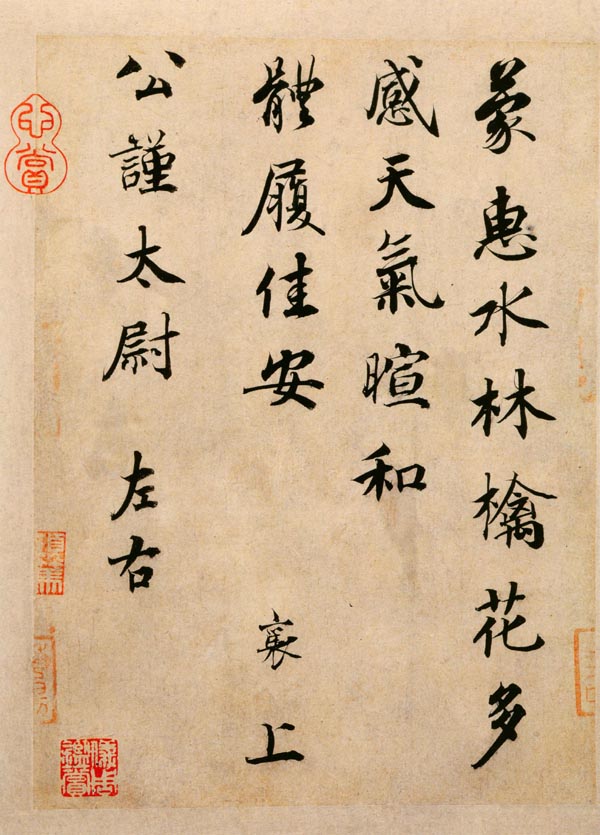 蒙惠水林檎花多
感天氣暄和
體履佳安　襄　上
公謹太尉　左右